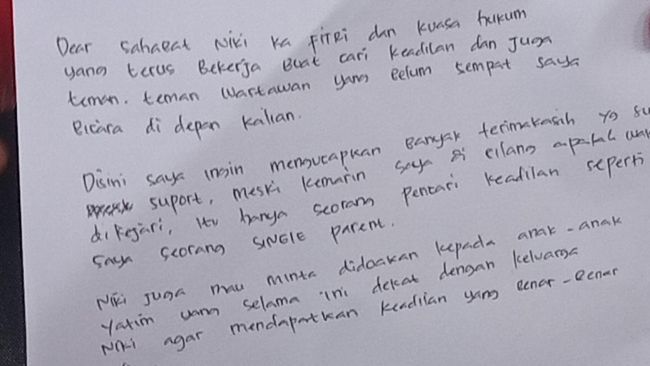 Dear Sahabat Niki Ka FITRi dan kuasa hukum
yang terus Bekerja Buat cari Keadilan dan Juga
teman. teman wartawan yang Belum sempat saya
Bicara di depan Kalian.
Disini saya ingin mengucapkan Banyak terimakasih yg su
suport, meski kemarin saya di Bilang apakah wak
di Kejari, itu hanya seorang pencari keadilan seperti
saya seorang SINGLE parent.
Niki Juga mau minta didoakan kepada anak-anak
Yatim yang selama ini dekat dengan keluarga
Niki agar mendapatkan Keadilan yang Benar-Benar